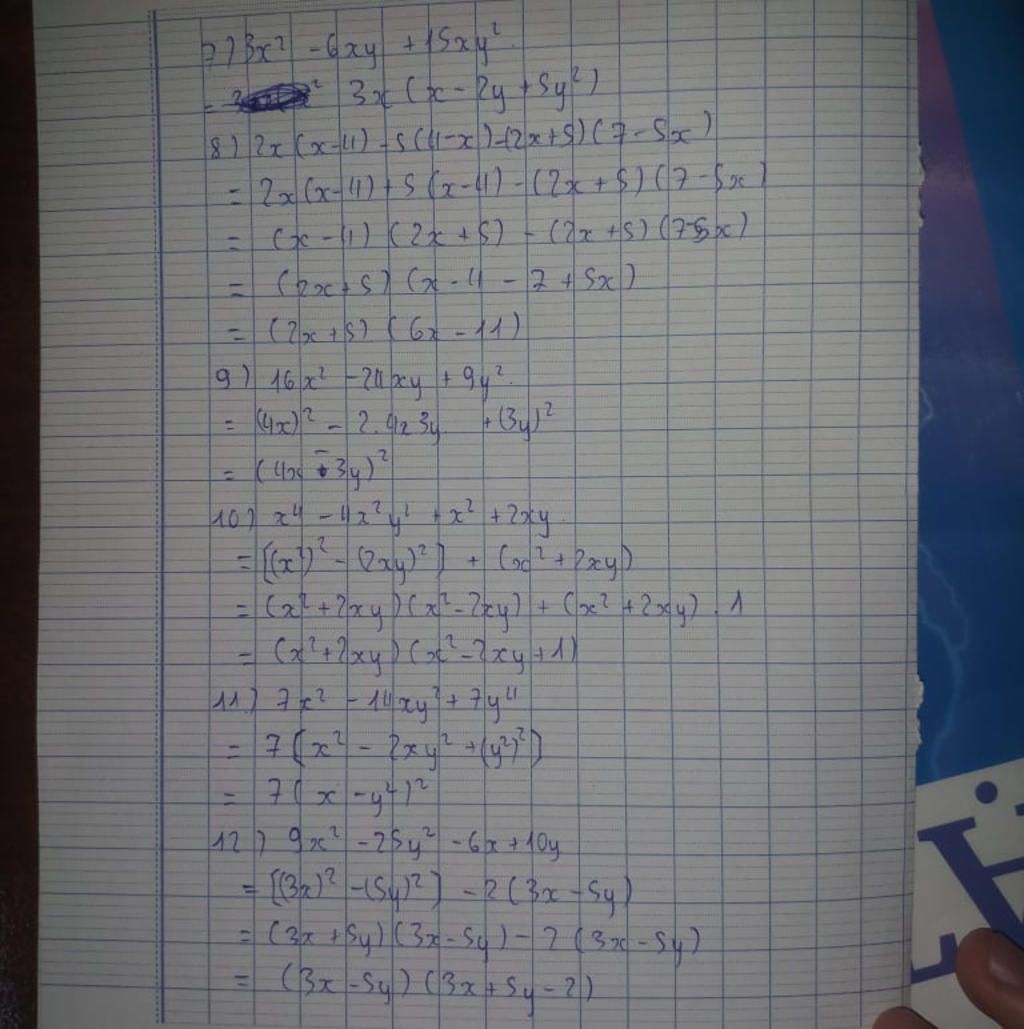 7) 3x² - 6xy + 15xy²
= 3x (x - 2y + 5y²)
8) 2x(x-4) - 5(4-x) - (2x+5)(7-5x)
= 2x(x-4) + 5(x-4) - (2x+5)(7-5x)
= (x-4)(2x+5) - (2x+5)(7-5x)
= (2x+5)(x-4-7+5x)
= (2x+5)(6x-11)
9) 16x² - 24xy + 9y²
= (4x)² - 2.4x3y + (3y)²
= (4x - 3y)²
10) x⁴ - 4x²y² + x² + 2xy
= [(x²)² - (2xy)²] + (x² + 2xy)
= (x² + 2xy)(x² - 2xy) + (x² + 2xy).1
= (x² + 2xy)(x² - 2xy + 1)
11) 7x² - 14xy² + 7y⁴
= 7[x² - 2xy² + (y²)²]
= 7(x - y²)²
12) 9x² - 25y² - 6x + 10y
= [(3x)² - (5y)²] - 2(3x - 5y)
= (3x + 5y)(3x - 5y) - 2(3x - 5y)
= (3x - 5y)(3x + 5y - 2)